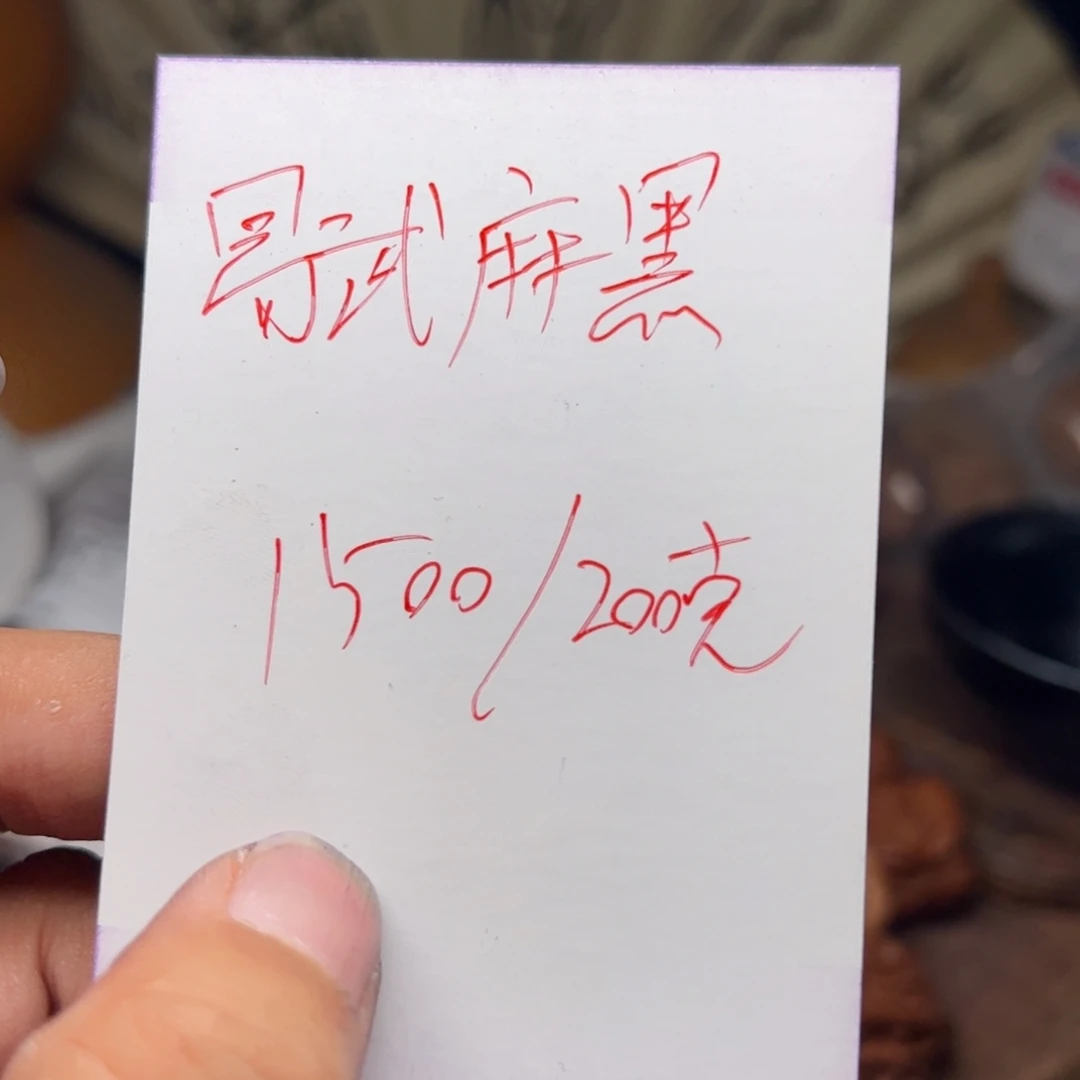 易武麻黑
1500/200克